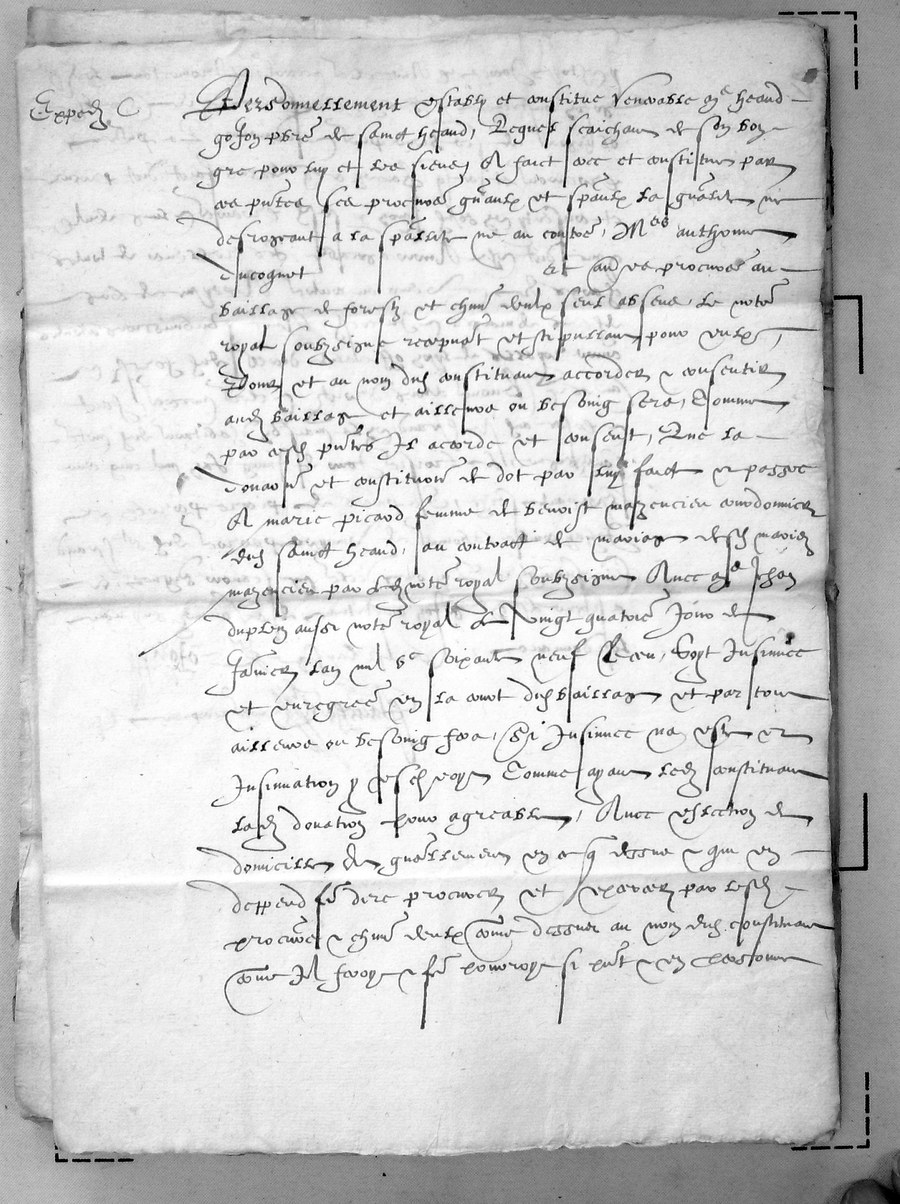 Expedié
Personnellement estably et constitue venerable me Heand
gojon pbre de sainct heand, Lequel scaichant de son bon
gre pour luy et les siens A faict cree et constitue par
ces pntes ses procureurs gnaulx et speaulx la gnalite ne
desrogeant a la speallite ne au contre, Mes anthoine
ducognet et ses procureurs au
bailliage de forestz et chun deulx seul absens, le notre
royal soubzsigne recepvant et stipullant pour eulx,
Pour et au nom dud constituant accorder & consentir
aud bailliage et ailleurs ou besoing sera, Comme
par cesd pntes Il accorde et consent, Que la
donaon et constituon de dot par luy faict & passee
A marie picard femme de benoist mazencieu courdonnier
dud sainct heand, au contract de mariage desd maries
mazencieu par led notre royal soubzsigne Avec me Jehan
duplen aussi notre royal le vingt quatre Jour de
Janvier lan mil vc soixante neuf Receu, Soyt Insinuee
et enregree en la court dud bailliage et par tout
ailleurs ou besoing sera, Si Insinuee na este et
Insinuation y eschoye Comme ayant led constituant
lad donation pour agreable, Avec eslection de
domicille & gnallement en ce q dessus & qui en
deppend fe dire procurer et exercer par lesd
procureurs & chun deulx come dessus au nom dud constituant
come Il feroye & fe pourroye si pnt & en personne